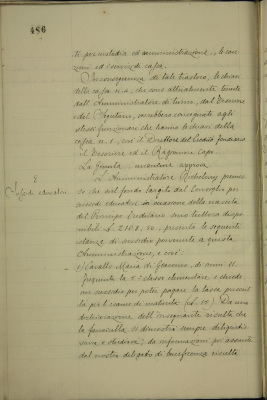 486
te per custodia ed amministrazione, le can-
zoni ed i servizi di cassa.
In conseguenza di tale trasloco, le chiavi
della cassa n. 2, che sono attualmente tenute
dall'Amministratore di turno, dal Tesoriere
e dal Segretario, verrebbero consegnate agli
stessi funzionari che hanno le chiavi della
cassa n. 1, cioè il Direttore del Credito fondiario
il Tesoriere ed il Ragioniere Capo.
La Giunta, unanime approva
8
L'Amministratore premes-
so che sul fondo largito dal Consiglio per
sussidi educativi in occasione della nascita
del Principe Ereditario sono tuttora dispo-
nibili L. 2108.50, presenta le seguenti
istanze di sussidio pervenute a questa
Amministrazione, e cioè:
1) Cavallo Maria di Giacomo, di anni 11.
Frequenta la 5ª classe elementare e chiede
un sussidio per poter pagare la tassa prescrit-
ta per l'esame di maturità (L. 15). Da una
dichiarazione dell'insegnante risulta che
la fanciulla si dimostrò sempre diligentis-
sima e studiosa; da informazioni poi assunte
dal nostro delegato di beneficenza risulta